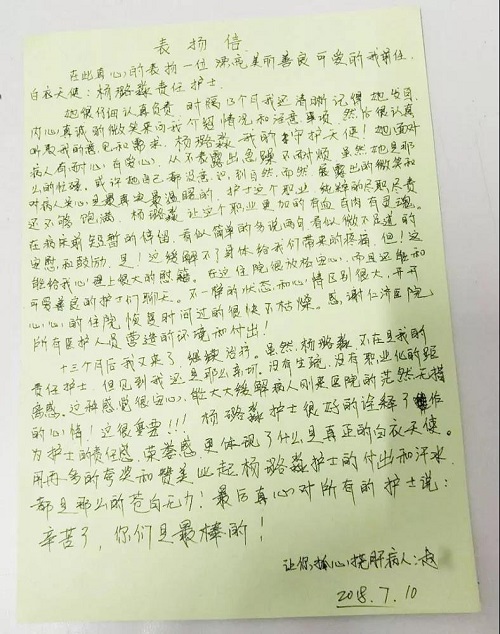 表扬信
在此真心的表扬一位漂亮美丽善良可爱的我前任
白衣天使：杨璐淼责任护士。
她很仔细认真负责，时隔13个月我还清晰记得她发自
内心真诚的微笑来向我介绍情况和注意事项，然后很认真
听取我的意见和需求。杨璐淼我的守护天使！她面对
病人有耐心有爱心，从不表露出急躁不耐烦，虽然她是那
么的忙碌，或许她自己都没意识到自然而然展露出的微笑和
对病人关心是最真也最温暖的，护士这个职业纯粹的尽职尽责
还不够饱满，杨璐淼让这个职业更加的有血有肉有灵魂。
在病床前短暂的停留，看似简单的多说两句看似微不足道的
安慰和鼓励，是！这缓解不了身体给我们带来的疼痛，但！这
能给我心理上很大的慰藉。在这住院很放松安心，而且还能和
可爱善良的护士们聊天。不一样的状态和心情区别很大，开开
心心的住院恢复时间过的很快不枯燥。感谢仁济医院
所有医护人员营造的环境和付出！
十三个月后我又来了继续治疗。虽然杨璐淼不在是我的
责任护士，但见到我还是那么亲切。没有生疏，没有职业化的距
离感。这种感觉很安心，能大大缓解病人刚来医院的茫然无措
的心情！这很重要！！！杨璐淼护士很好的诠释了作
为护士的责任感，荣誉感更体现了什么是真正的白衣天使。
用再多的夸奖和赞美比起杨璐淼护士的付出和汗水
都是那么的苍白无力！最后真心对所有的护士说：
辛苦了，你们是最棒的！
让你抓心挠肝病人：赵
2018.7.10